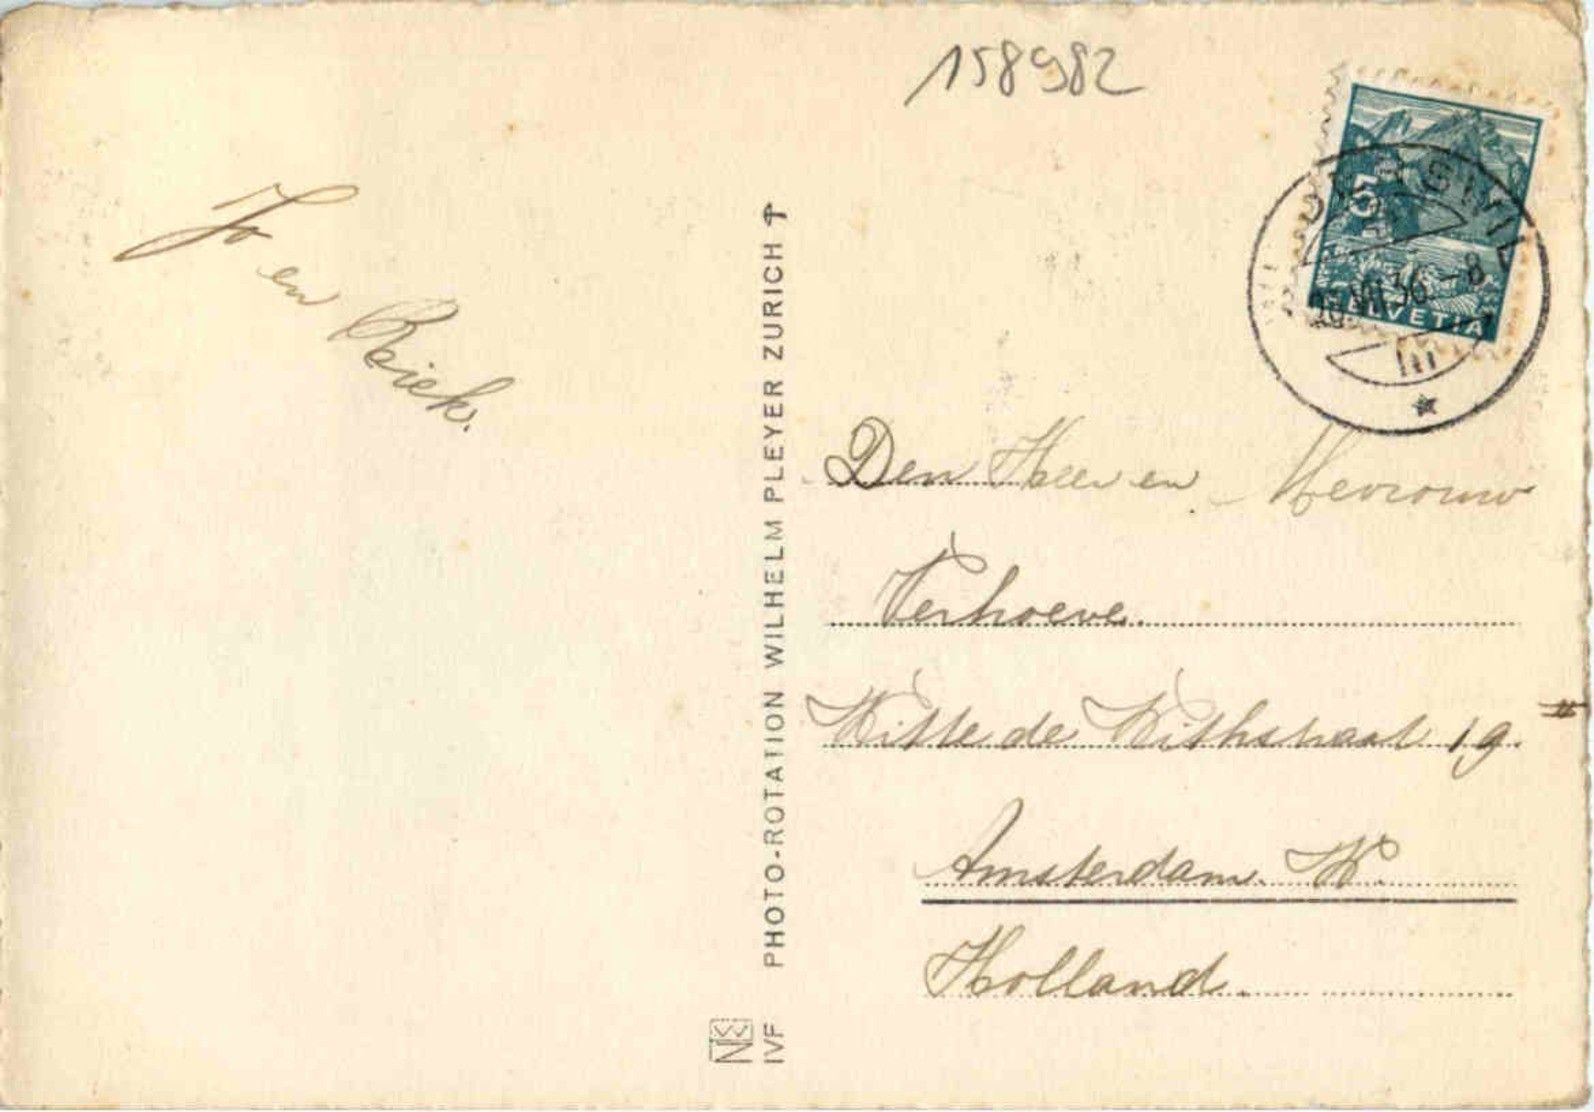 158982
5
HELVETIA
III
Jo en Riek.
PHOTO-ROTATION WILHELM PLEYER ZURICH
IVF
Den Heer en Mevrouw
Verhoeve.
Witte de Withstraat 19.
Amsterdam. W.
Holland.